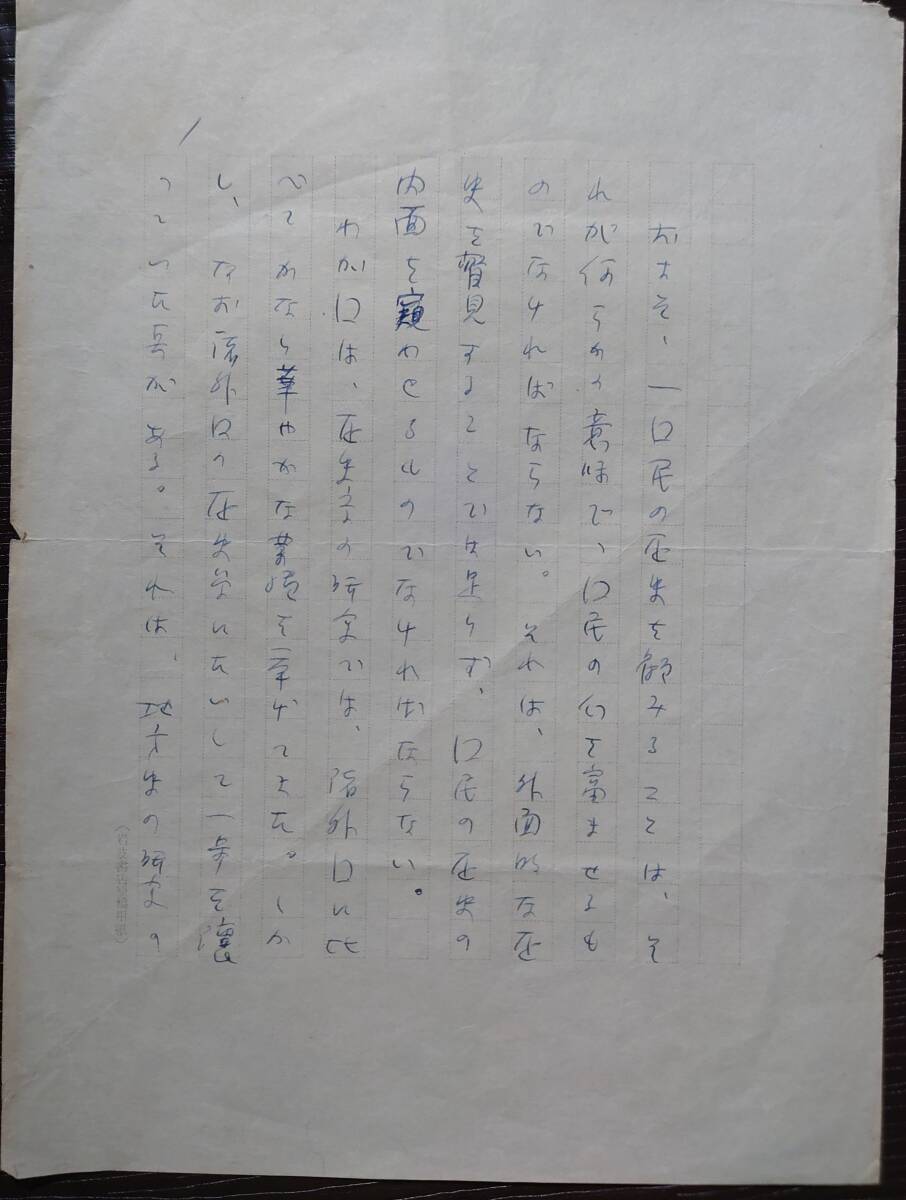 およそ、一国民の歴史を顧みることは、そ
れが何らかの意味で、国民の心を富ませるも
のでなければならない。それは、外面的な歴
史を瞥見することでは足りず、国民の歴史の
内面を窺わせるものでなければならない。
わが国は、歴史学の研究では、諸外国に比
べてかなり華やかな業績を挙げてきた。しか
し、なお諸外国の歴史学にたいして一歩を譲
っていた点がある。それは、地方史の研究の
(岩波書店原稿用紙)